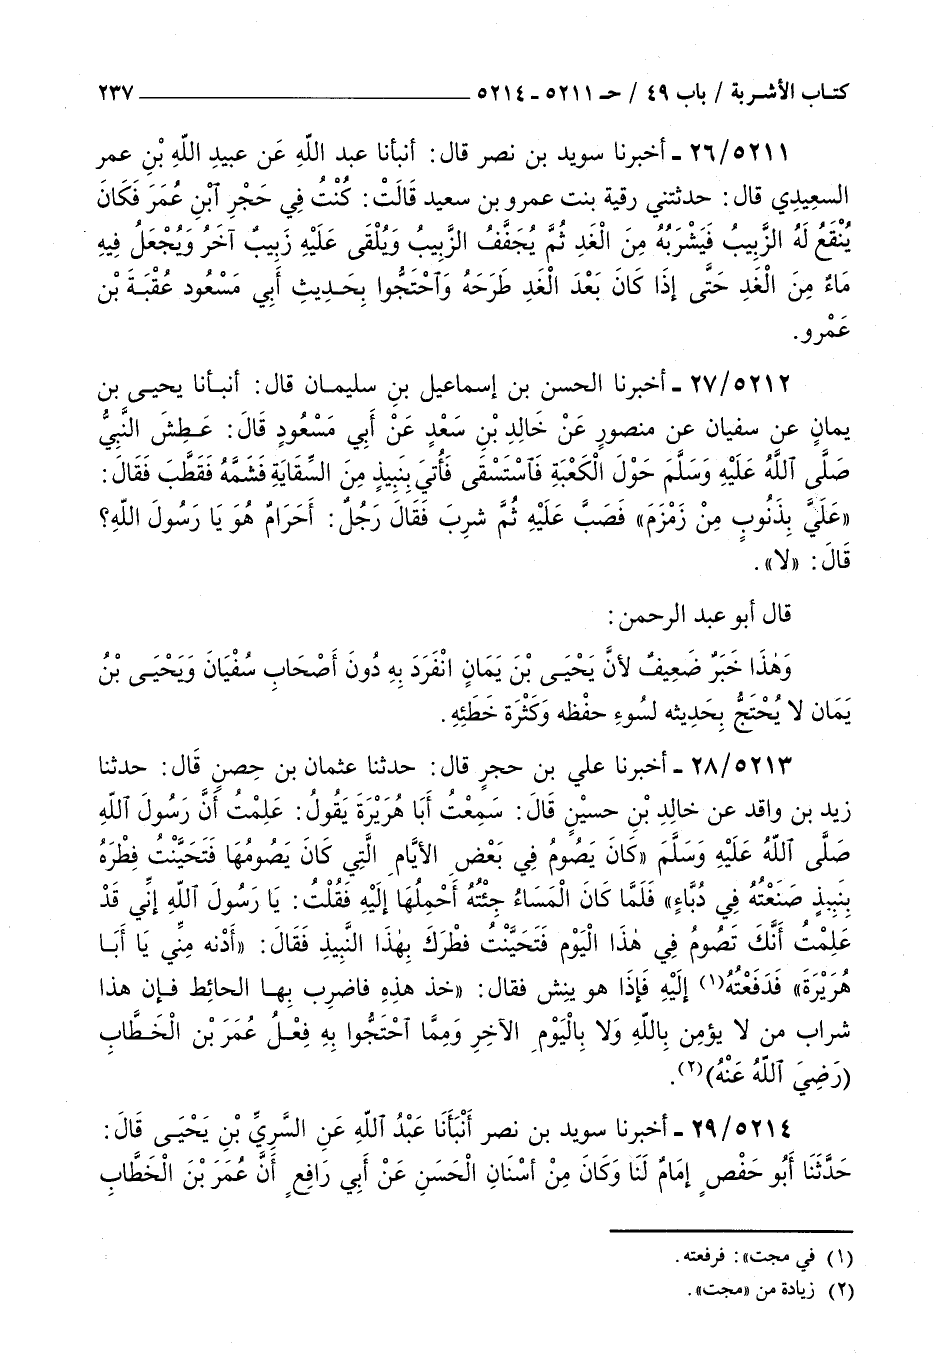 كتاب الأشربة / باب ٤٩ / حـ ٥٢١١ - ٥٢١٤ ــــــــــــــــــــ ٢٣٧
٢٦/٥٢١١ ـ أخبرنا سويد بن نصر قال: أنبأنا عبد الله عَن عبيدِ اللّهِ بْنِ عمر
السعيدِي قال: حدثتني رقية بنت عمرو بن سعيد قَالَتْ: كُنْتُ فِي حَجْرِ ٱبْنِ عُمَرَ فَكَانَ
يُنْقَعُ لَهُ الزَّبِيبُ فَيَشْرَبُهُ مِنَ الْغَدِ ثُمَّ يُجَفَّفُ الزَّبِيبُ وَيُلْقَى عَلَيْهِ زَبِيبٌ آخَرُ وَيُجْعَلُ فِيهِ
مَاءٌ مِنَ الْغَدِ حَتَّى إِذَا كَانَ بَعْدَ الْغَدِ طَرَحَهُ وَٱحْتَجُّوا بِحَدِيثِ أَبِي مَسْعُود عُقْبَةَ بْن
عَمْرو.
٢٧/٥٢١٢ ـ أخبرنا الحسن بن إسماعيل بنِ سليمان قال: أنبأنا يحيى بن
يمانٍ عن سفيان عن منصورٍ عَنْ خَالِدِ بْنِ سَعْدٍ عَنْ أَبِي مَسْعُودٍ قَالَ: عَطِشَ النَّبِيُّ
صَلَّى ٱللَّهُ عَلَيْهِ وَسَلَّمَ حَوْلَ الْكَعْبَةِ فَٱسْتَسْقَى فَأُتِيَ بِنَبِيذٍ مِنَ السِّقَايَةِ فَشَمَّهُ فَقَطَّبَ فَقَالَ:
«عَلَيَّ بِذَنُوبٍ مِنْ زَمْزَمَ» فَصَبَّ عَلَيْهِ ثُمَّ شرِبَ فَقَالَ رَجُلٌ: أَحَرَامٌ هُوَ يَا رَسُولَ اللّهِ؟
قَالَ: «لا».
قال أبو عبد الرحمن:
وَهٰذَا خَبَرٌ ضَعِيفٌ لأنَّ يَحْيَى بْنَ يَمَانٍ انْفَرَدَ بِهِ دُونَ أَصْحَابِ سُفْيَانَ وَيَحْيَى بْنُ
يَمَان لا يُحْتَجُّ بِحَدِيثه لسُوءِ حفْظه وَكَثْرَة خَطَئِهِ.
٢٨/٥٢١٣ ـ أخبرنا علي بن حجرٍ قال: حدثنا عثمان بن حِصنٍ قَالَ: حدثنا
زيد بن واقد عن خالدِ بْنِ حسينٍ قَالَ: سَمِعْتُ أَبَا هُرَيْرَةَ يَقُولُ: عَلِمْتُ أَنَّ رَسُولَ ٱللّهِ
صَلَّى ٱللّهُ عَلَيْهِ وَسَلَّمَ «كَانَ يَصُومُ فِي بَعْضِ الأيَّامِ الَّتِي كَانَ يَصُومُهَا فَتَحَيَّنْتُ فِطْرَهُ
بِنَبِيذٍ صَنَعْتُهُ فِي دُبَّاءٍ» فَلَمَّا كَانَ الْمَسَاءُ جِئْتُهُ أَحْمِلُهَا إِلَيْهِ فَقُلْتُ: يَا رَسُولَ ٱللّهِ إِنِّي قَدْ
عَلِمْتُ أَنَّكَ تَصُومُ فِي هٰذَا الْيَوْمِ فَتَحَيَّنْتُ فطْرَكَ بِهٰذَا النَّبِيذِ فَقَالَ: «أَدْنه مِنِّي يَا أَبَا
هُرَيْرَةَ» فَدَفَعْتُهُ(١) إِلَيْهِ فَإِذَا هو ينِش فقال: «خذ هذِهِ فاضرِب بِها الحائِط فإن هذا
شراب من لا يؤمِن بِاللّهِ وَلا بِالْيَوْمِ الآخِرِ وَمِمَّا ٱحْتَجُّوا بِهِ فِعْلُ عُمَرَ بْن الْخَطَّاب
(رَضِيَ ٱللّهُ عَنْهُ)(٢).
٢٩/٥٢١٤ ـ أخبرنا سويد بن نصر أَنْبَأَنَا عَبْدُ ٱللّهِ عَنِ السَّرِيِّ بْنِ يَحْيَى قَالَ:
حَدَّثَنَا أَبُو حَفْصٍ إِمَامٌ لَنَا وَكَانَ مِنْ أَسْنَانِ الْحَسَنِ عَنْ أَبِي رَافِعٍ أَنَّ عُمَرَ بْنَ الْخَطَّابِ
(١) في مجت»: فرفعته.
(٢) زيادة من «مجت».